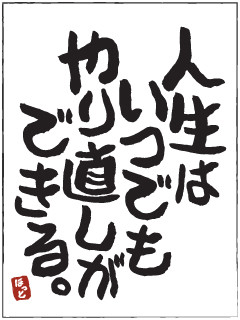 人生は
いつでも
やり直しが
できる。
ほっと